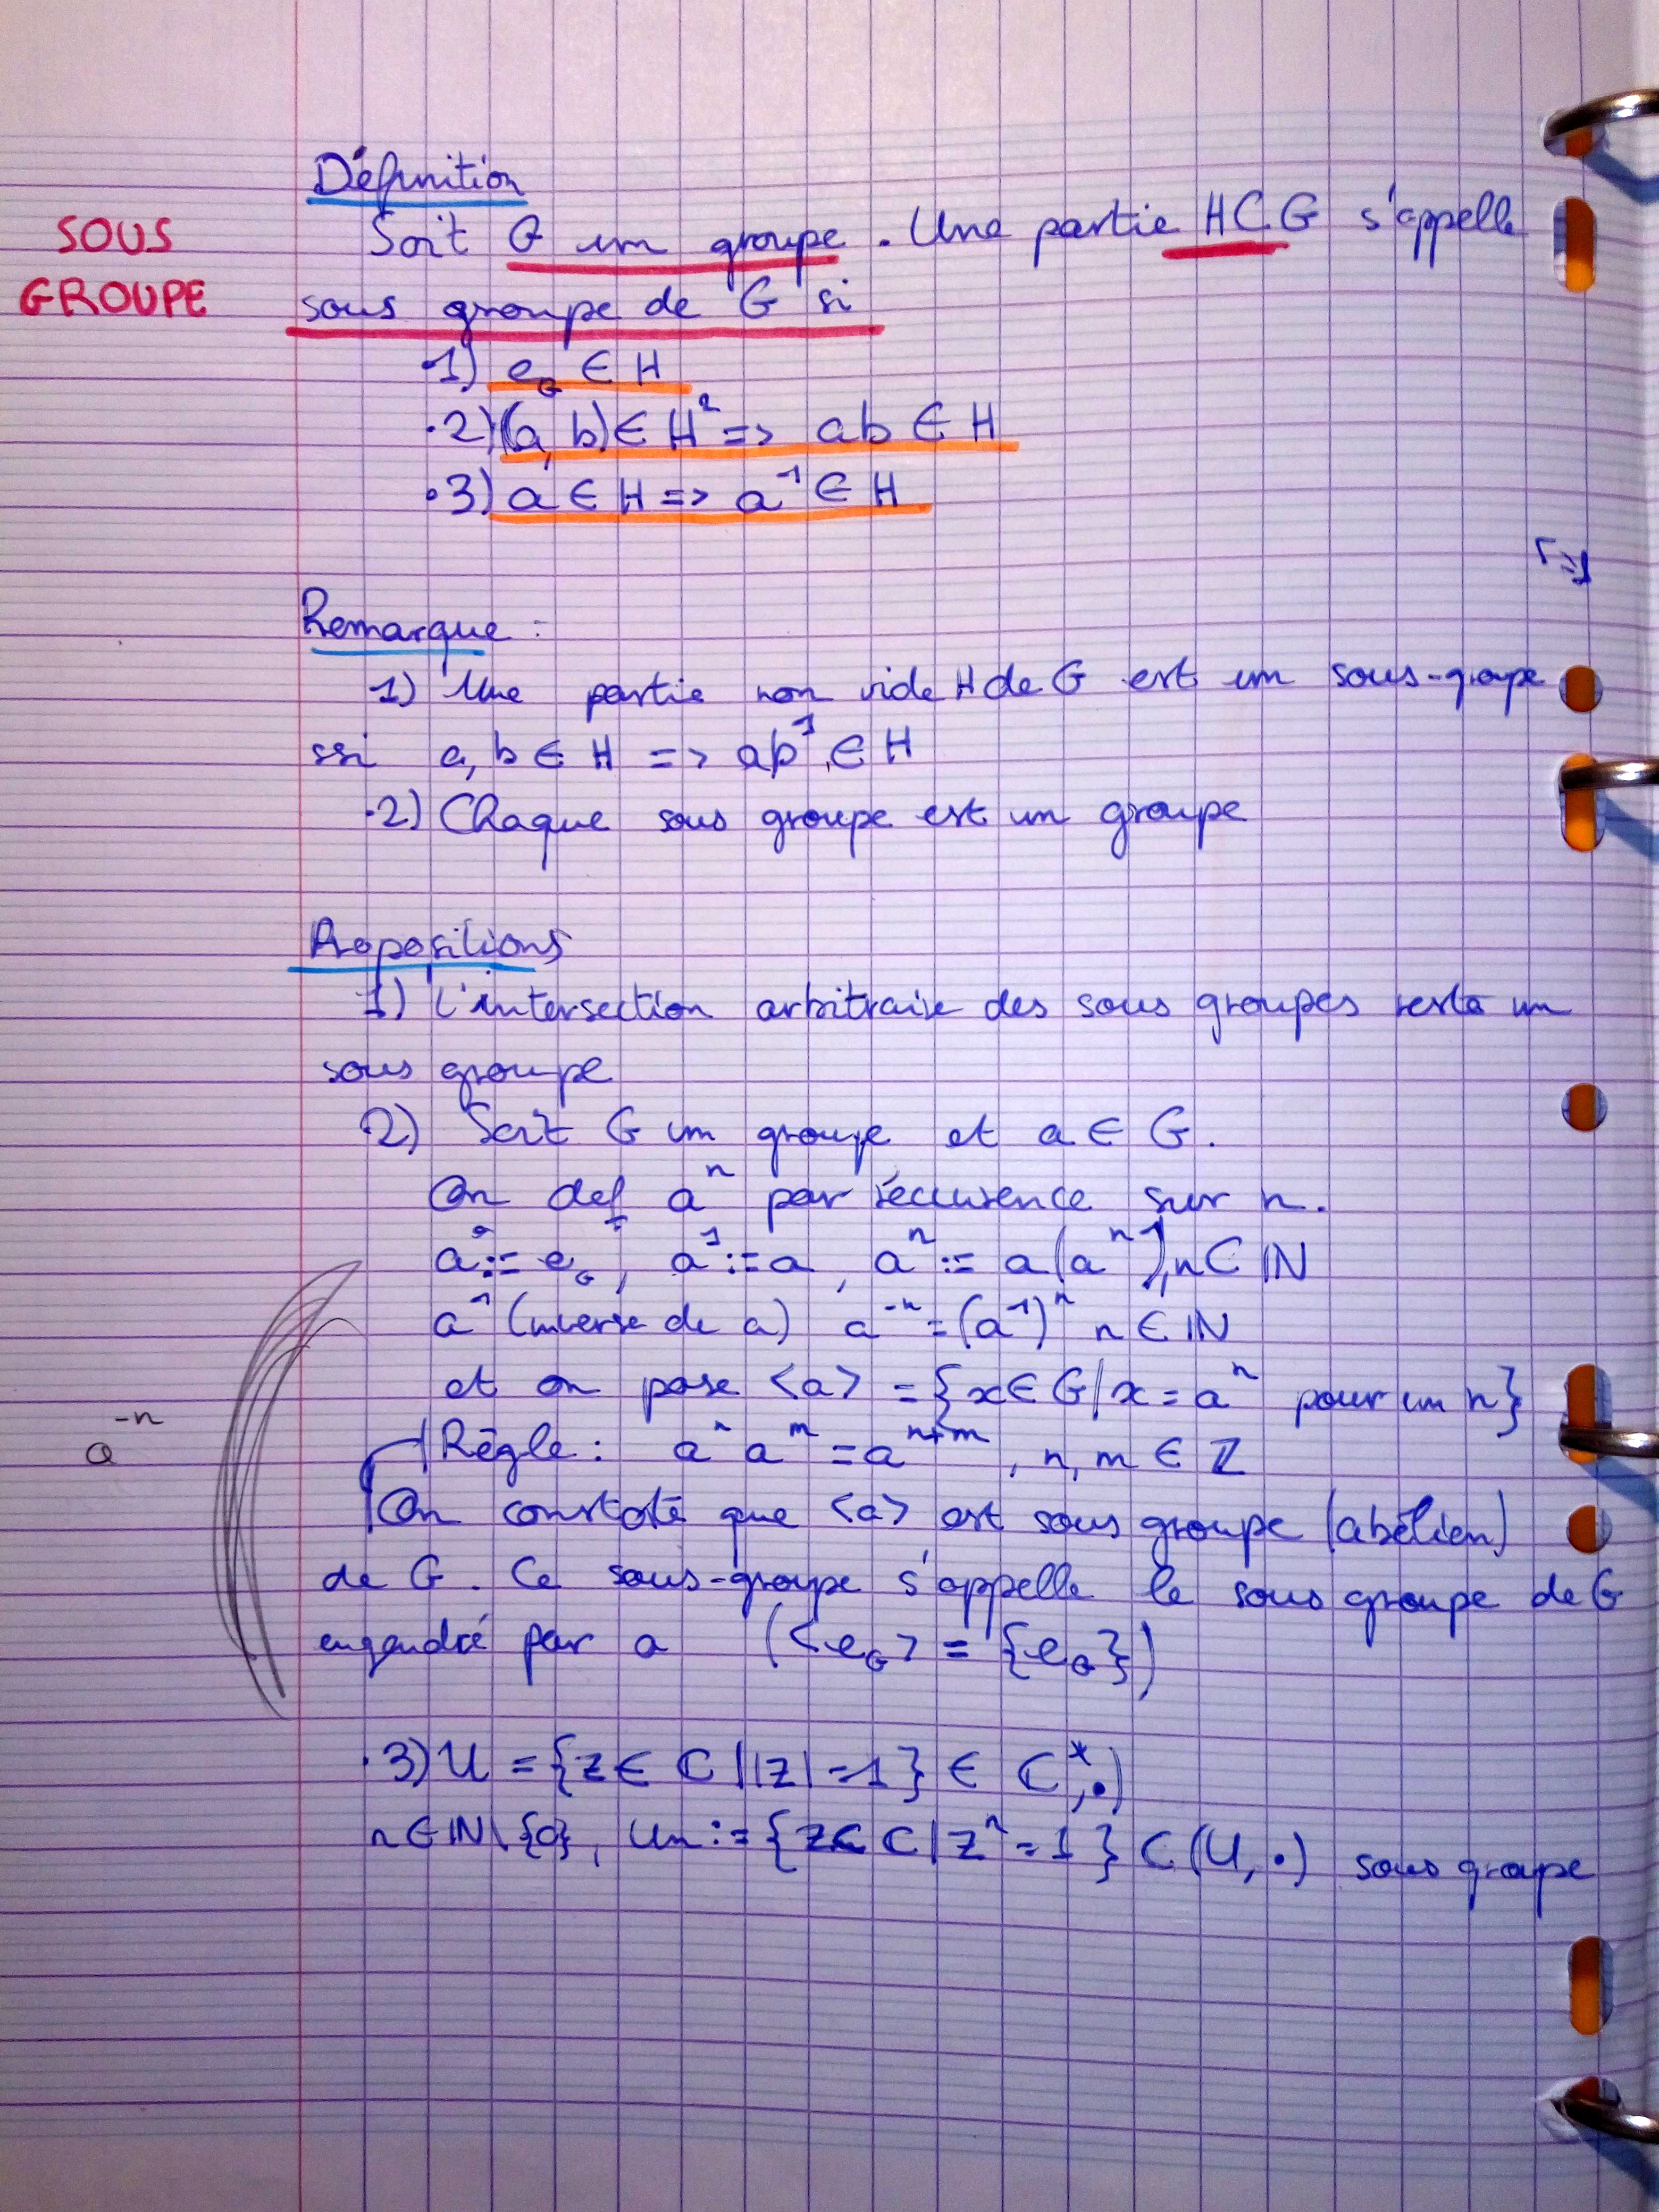 Définition
SOUS
GROUPE
Soit G un groupe. Une partie H⊂G s'appelle
sous groupe de G si
.1) e_G ∈ H
.2) (a, b) ∈ H² => ab ∈ H
.3) a ∈ H => a⁻¹ ∈ H
Remarque :
1) Une partie non vide H de G est un sous-groupe
ssi a, b ∈ H => ab⁻¹ ∈ H
.2) Chaque sous groupe est un groupe
Propositions
1) L'intersection arbitraire des sous groupes reste un
sous groupe
2) Soit G un groupe et a ∈ G.
On def aⁿ par récurence sur n.
a⁰ := e_G, a¹ := a, aⁿ := a(aⁿ⁻¹), n ∈ ℕ
a⁻¹ (inverse de a) a⁻ⁿ = (a⁻¹)ⁿ n ∈ ℕ
et on pose <a> = {x ∈ G | x = aⁿ pour un n}
a⁻ⁿ
Règle : aⁿ aᵐ = aⁿ⁺ᵐ, n, m ∈ ℤ
On constate que <a> est sous groupe (abélien)
de G. Ce sous-groupe s'appelle le sous groupe de G
engendré par a (<e_G> = {e_G})
.3) U = {z ∈ ℂ | |z| = 1} ∈ ℂ*, .)
n ∈ ℕ\{0}, Un := {z ∈ ℂ | zⁿ = 1} ⊂ (U, .) sous groupe